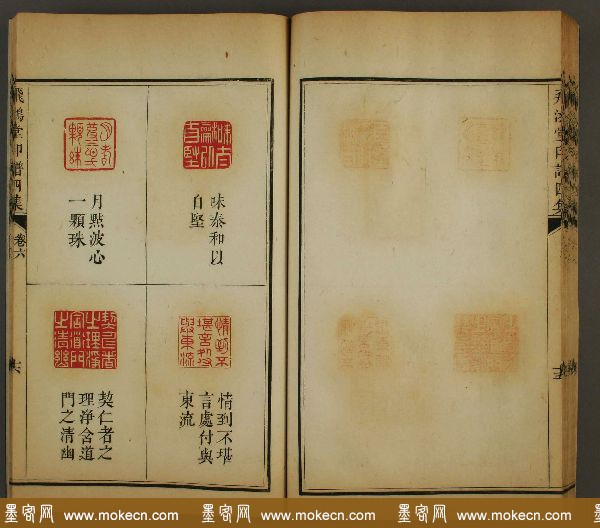 飛鴻堂印譜四集
卷六
味泰和以
自堅
月點波心
一顆珠
情到不堪
言處付與
東流
契仁者之
理淨含道
門之清幽
墨客网 www.mokecn.com 墨客网 www.mokecn.com 墨客网 www.mokecn.com